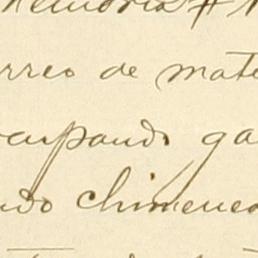 Memoria #
rreo de mate
carpando ga
ndo chimenea